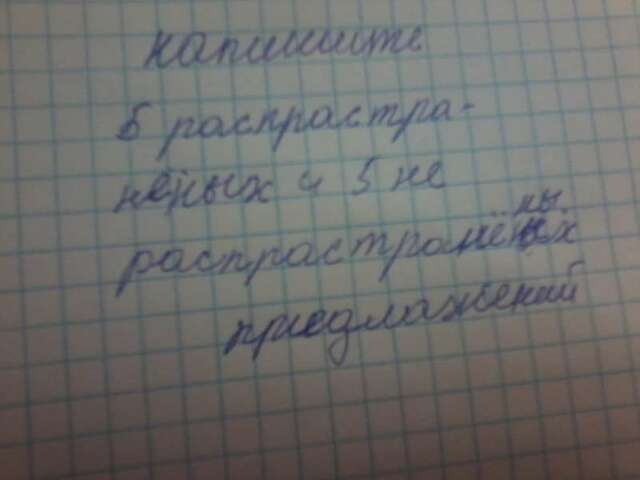 напишите
5 распрастра-
нёных и 5 не
распрастранённых
придлажений